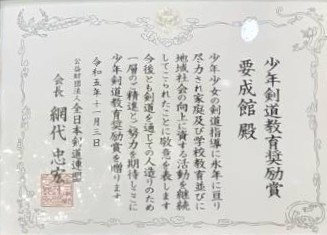 少年剣道教育奨励賞
要成館 殿
少年少女の剣道指導に永年に亘り
尽力され家庭及び学校教育並びに
地域社会の向上に資する活動を継続
してこられたことに敬意を表します
今後とも剣道を通じての人造りのため
一層のご精進とご努力を期待しここに
少年剣道教育奨励賞を贈ります
令和五年十一月三日
公益財団法人 全日本剣道連盟
会長 網代忠宏